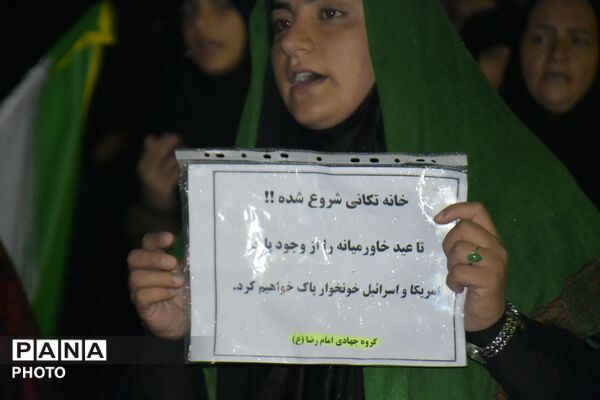 خانه تکانی شروع شده !!
تا عید خاورمیانه را از وجود
امریکا و اسرائیل خونخوار پاک خواهیم کرد.
گروه جهادی امام رضا (ع)
PANA
PHOTO